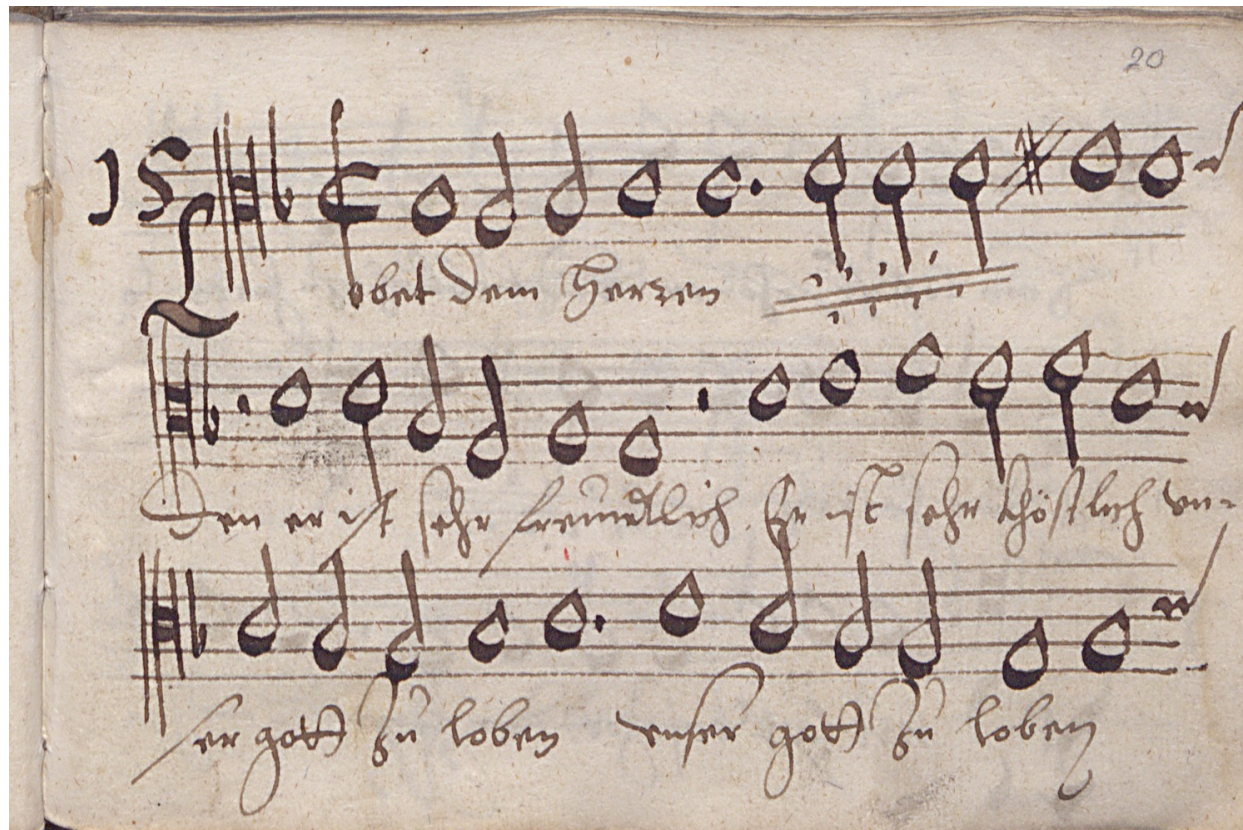 20
15
Lobet dem Herren
Den er ist sehr freundtlich. Er ist sehr khöstlich vn=
ser gott zu loben vnser gott zu loben